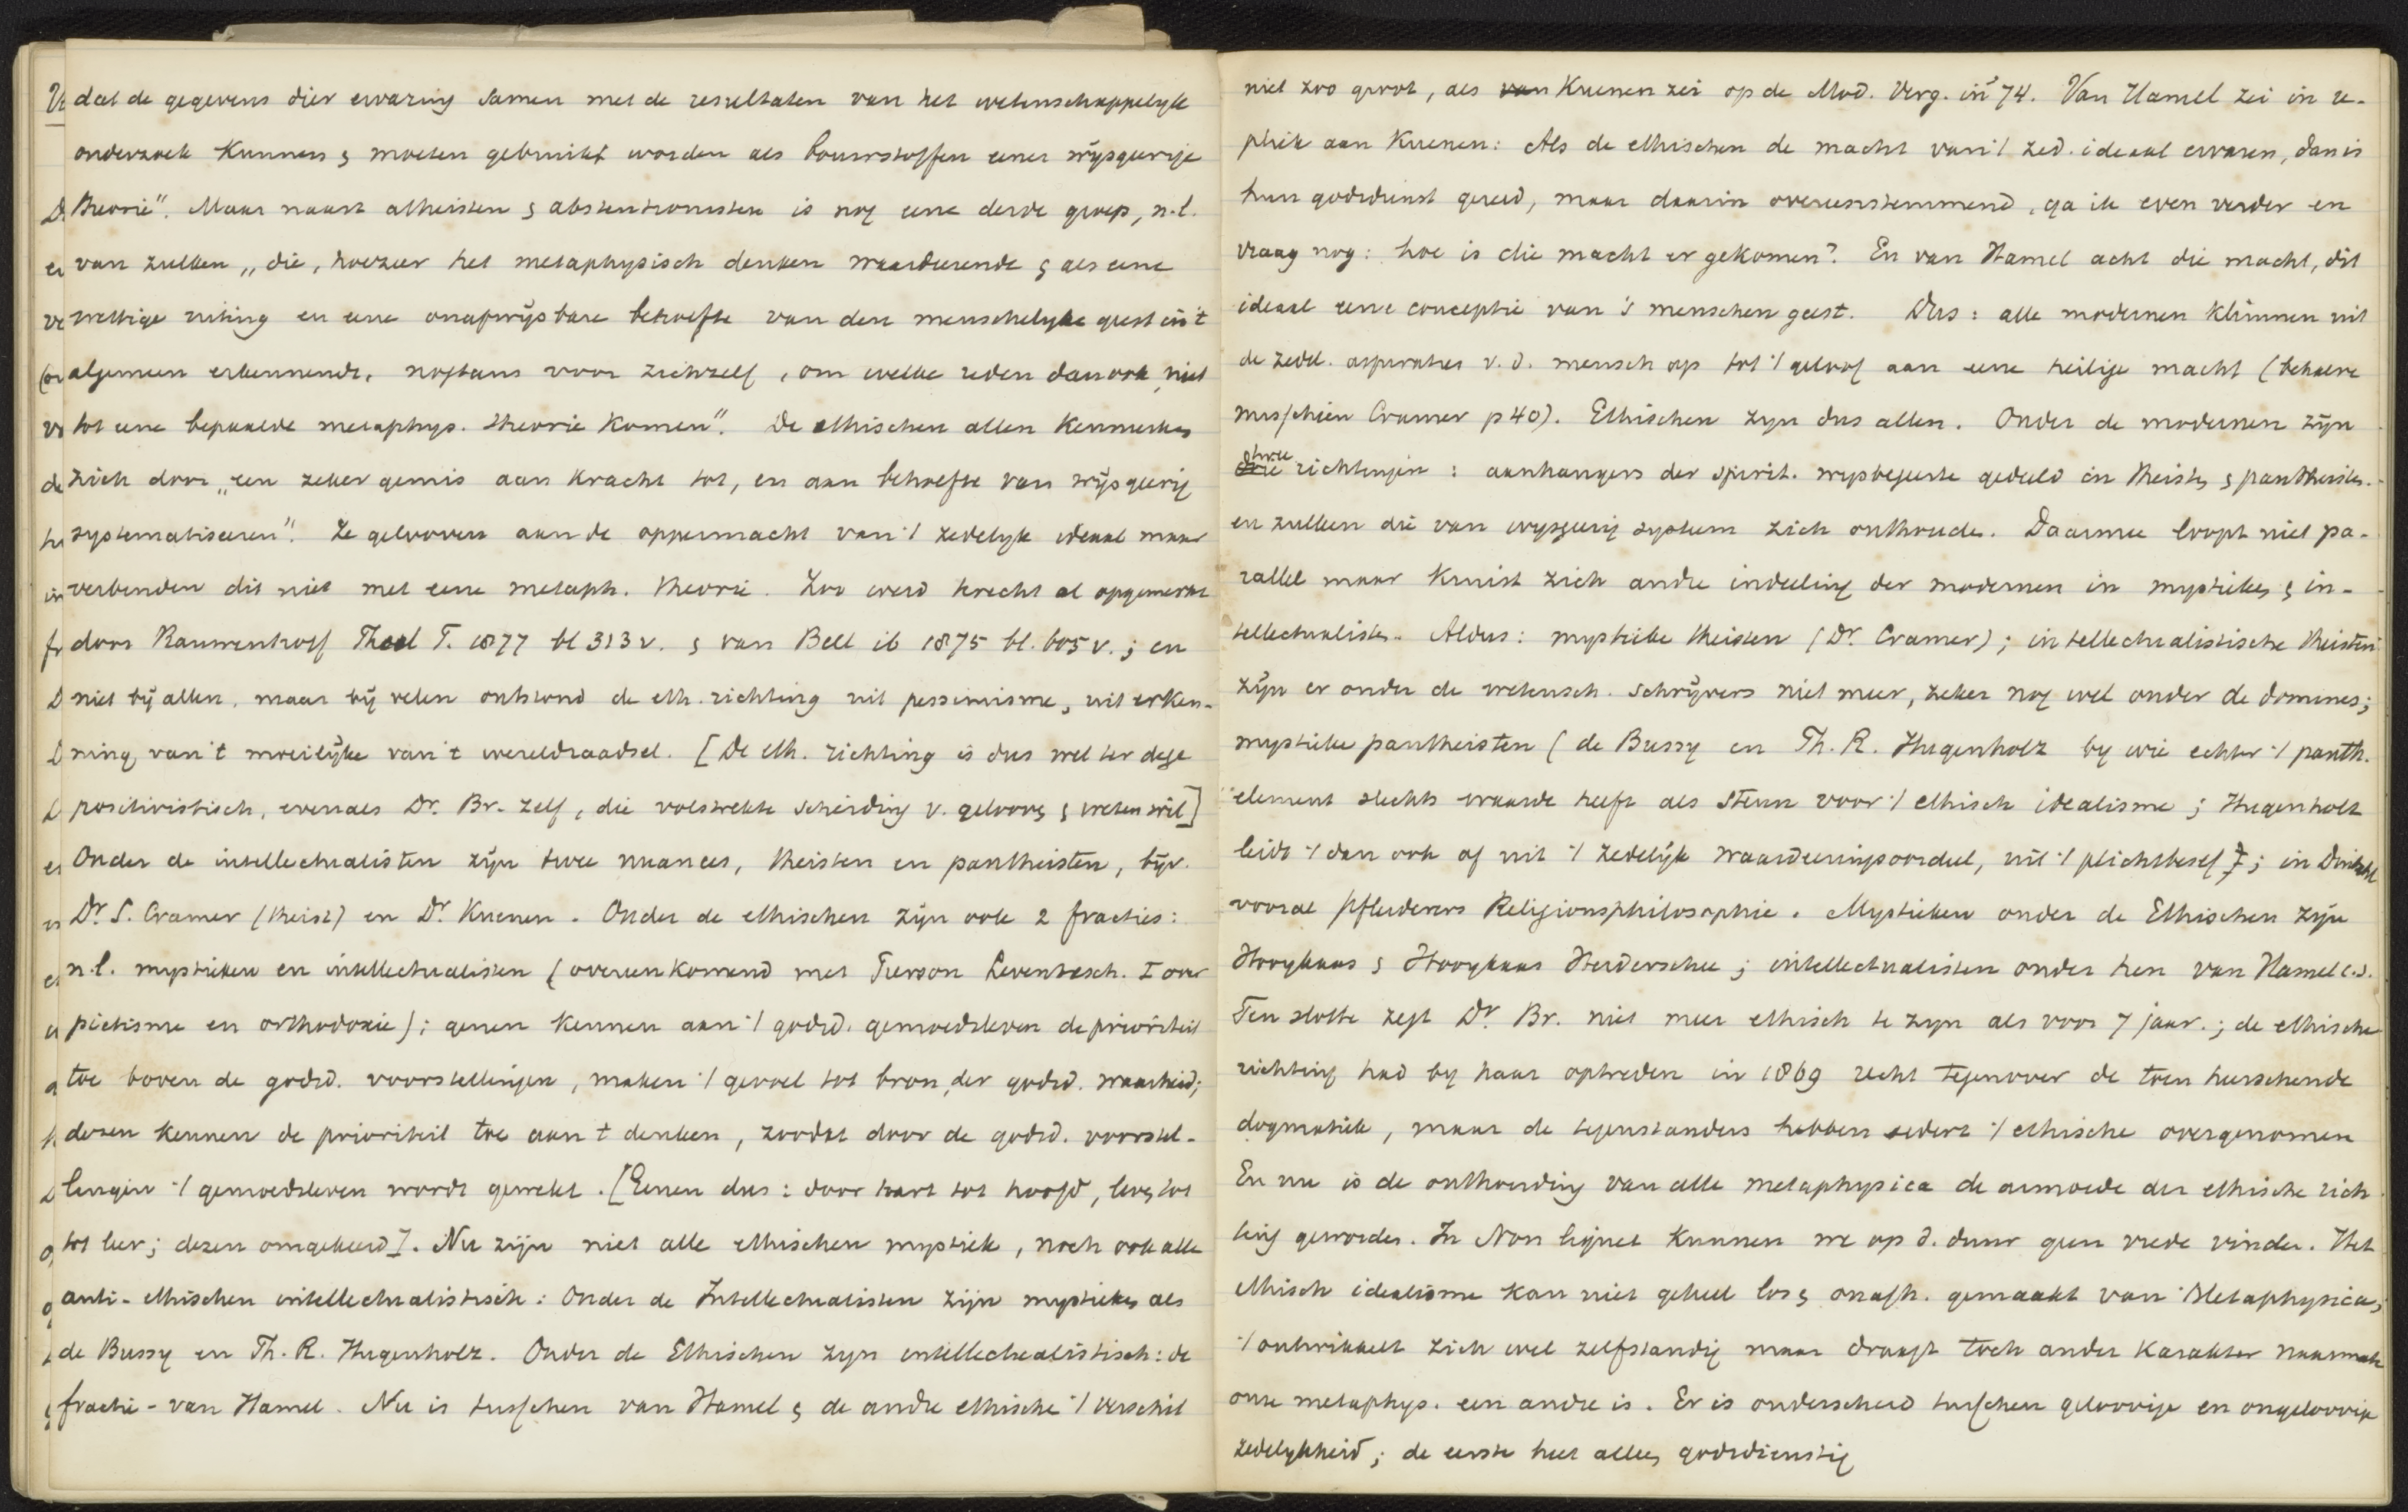 dat de gegevens dier ervaring samen met de resultaten van het wetenschappelyk
onderzoek kunnen & moeten gebruikt worden als bouwstoffen eener wijsgeerige
theorie". Maar naast atheisten & abstentionisten is nog eene derde groep, n.l.
van zulken „die, hoezeer het metaphysisch denken waardeerende & als eene
wettige uiting en eene onafwijsbare behoefte van den menschelyke geest in 't
algemeen erkennende, nogtans voor zichzelf, om welke reden dan ook, niet
tot eene bepaalde metaphys. theorie komen". De ethischen allen kenmerken
zich door „een zeker gemis aan kracht tot, en aan behoefte van wijsgeerig
systematiseeren". Ze gelooven aan de oppermacht van 't zedelyk ideaal maar
verbenden dit niet met eene metaph. theorie. Zoo werd terecht al opgemerkt
door Rauwenhoff Theol T. 1877 bl 313 v. & van Bell ib 1875 bl. 605 v.; en
niet bij allen, maar bij velen ontstond de eth. richting uit pessimisme, uit erken-
ning van 't moeilijke van 't wereldraadsel. [De eth. richting is dus wel ter dege
positivistisch, evenals Dr. Br. zelf, die volstrekte scheiding v. gelooven & weten wil]
Onder de intellectualisten zijn twee nuances, theisten en pantheisten, bijv.
Dr. S. Cramer (theist) en Dr. Kuenen. Onder de ethischen zijn ook 2 fracties:
n.l. mystieken en intellectualisten (overeenkomend met Pierson Levensbesch. I over
pietisme en orthodoxie); genen kennen aan 't godsd. gemoedsleven de prioriteit
toe boven de godsd. voorstellingen, maken 't gevoel tot bron der godsd. waarheid;
dezen kennen de prioriteit toe aan 't denken, zoodat door de godsd. voorstel-
lingen 't gemoedsleven wordt gewekt. [Genen dus: door hart tot hoofd, leven tot
tot leer; dezen omgekeerd]. Nu zijn niet alle ethischen mystiek, noch ook alle
anti-ethischen intellectualistisch: Onder de Intellectualisten zijn mystieken als
de Bussy en Th. R. Hugenholz. Onder de Ethischen zyn intellectualistisch: de
fractie - van Hamel. Nu is tusschen van Hamel & de andre ethische 't verschil
niet zoo groot, als van Kuenen zei op de Mod. Verg. in '74. Van Hamel zei in re-
pliek aan Kuenen: Als de ethischen de macht van 't zed. ideaal ervaren, dan is
hun godsdienst gereed, maar daarin overeenstemmend, ga ik even verder en
vraag nog: hoe is die macht er gekomen? En van Hamel acht die macht, dit
ideaal eene conceptie van 's menschen geest. Dus: alle modernen klimmen uit
de zedel. aspiraties v. d. mensch op tot 't geloof aan eene heilige macht (behalve
misschien Cramer p 40). Ethischen zyn dus allen. Onder de modernen zijn
twee richtingen: aanhangers der spirit. wysbegeerte gedeeld in theisten & pantheisten
en zulken die van wysgeerig systeem zich onthouden. Daarmee loopt niet pa-
rallel maar kruist zich andre indeeling der modernen in mystieken & in-
tellectualisten. Aldus: mystieke theisten (Dr. Cramer); intellectualistische theisten
zijn er onder de wetensch. schrijvers niet meer, zeker nog wel onder de domines;
mystieke pantheisten (de Bussy en Th. R. Hugenholz by wie echter 't panth.
element slechts waarde heeft als steun voor 't ethisch idealisme; Hugenholz
leidt 't dan ook af uit 't zedelijk waardeeringsoordeel, uit 't plichtbesef); in Duitschl
vooral Pfleiderers Religionsphilosophie. Mystieken onder de Ethischen zijn
Hooykaas & Hooykaas Herderschee; intellectualisten onder hen van Hamel c.s.
Ten slotte zegt Dr. Br. niet meer ethisch te zyn als voor 7 jaar.; de ethische
richting had by haar optreden in 1869 recht tegenover de toen heerschende
dogmatiek, maar de tegenstanders hebben sedert 't ethische overgenomen
En nu is de onthouding van alle metaphysica de armoede der ethische rich
ting geworden. In Non liquet kunnen we op d. duur geen vrede vinden. Het
ethisch idealisme kan niet geheel los & onafh. gemaakt van Metaphysica;
't ontwikkelt zich wel zelfstandig maar draagt toch ander karakter naarmate
onze metaphys. een andre is. Er is onderscheid tusschen geloovige en ongeloovige
zedelykheid; de eerste heet alleen godsdienstig